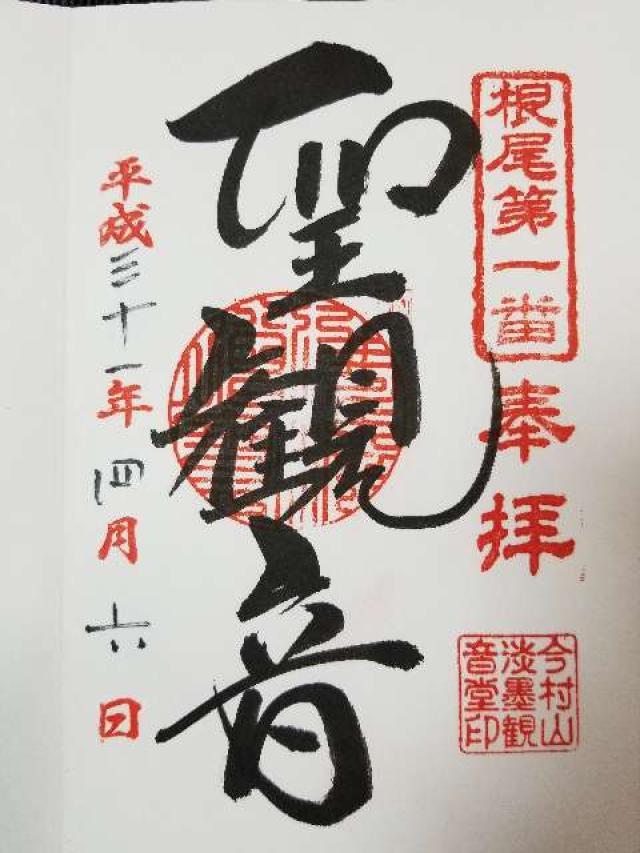 根尾第一番
奉拝
今村山
淡墨観
音堂印
聖観音
平成三十一年四月六日